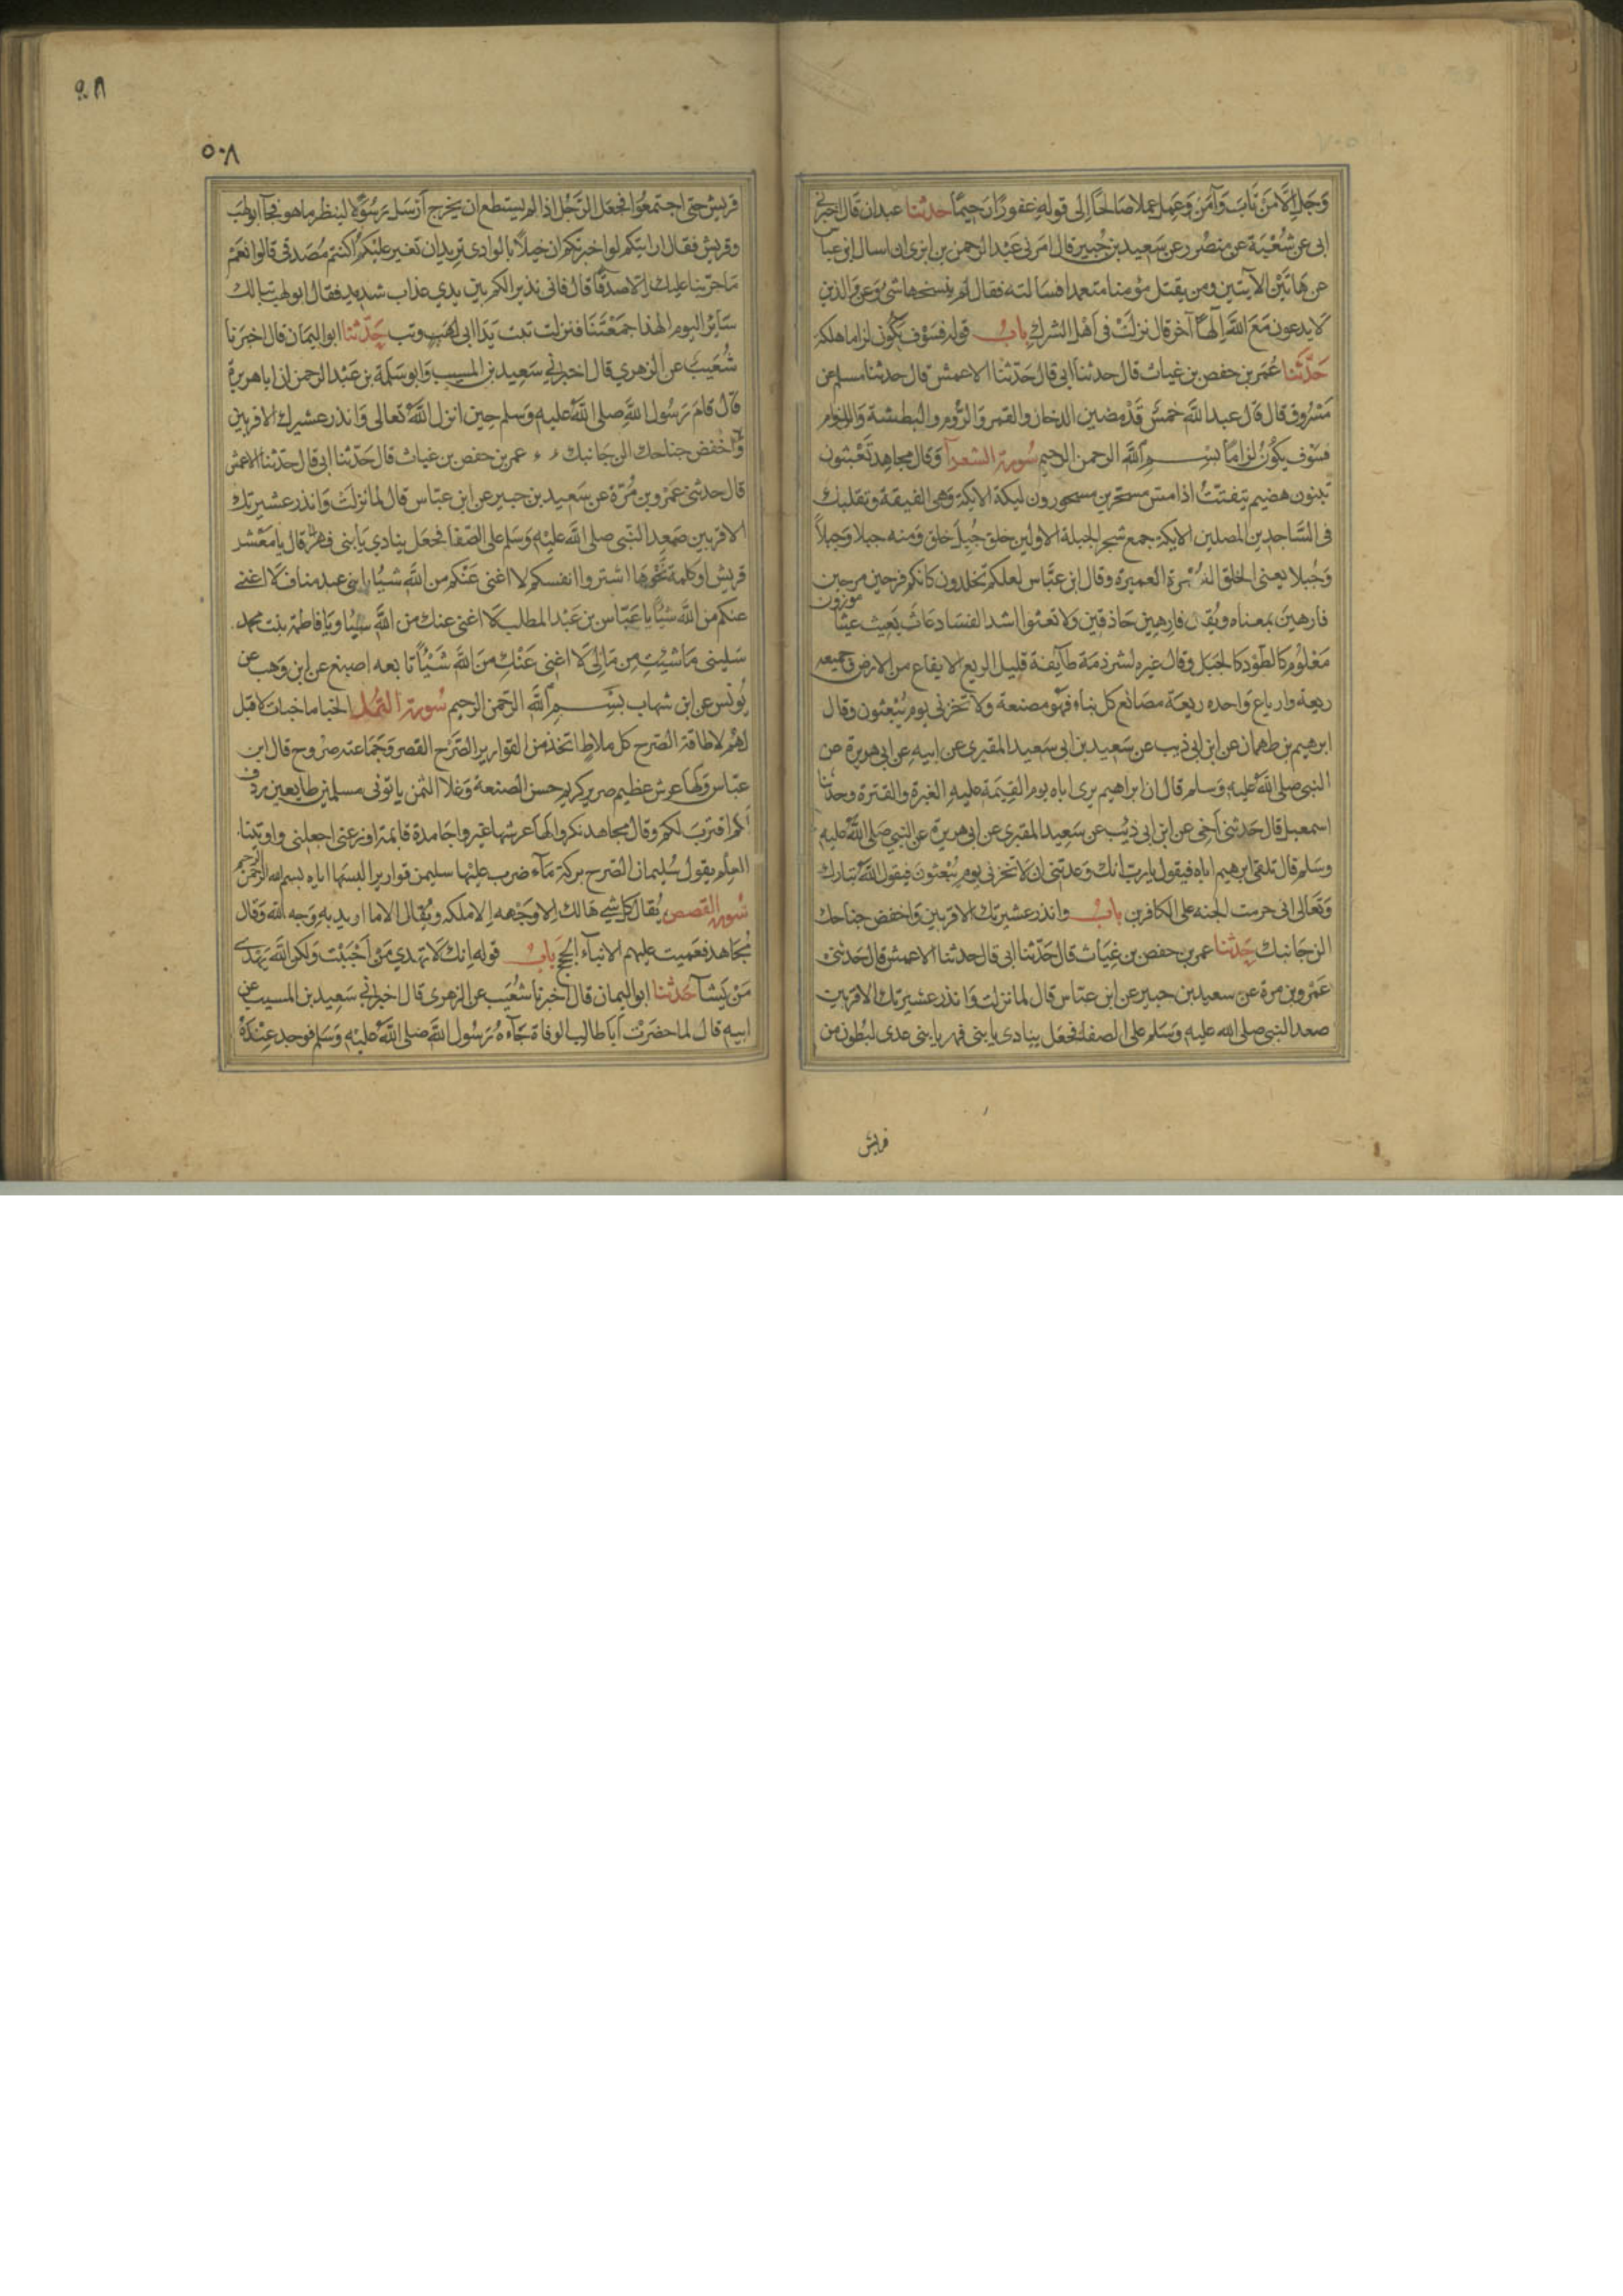 وَجَلَّ إِلَّا مَنْ تَابَ وَآمَنَ وَعَمِلَ عملا صَالحًا إلى قوله غفورًا رحيمًا حدثنا عبدان قال اخبرني
ابي عن شُعْبَة عن منصُور عن سَعيد بن جُبير قال امرني عَبْد الرحمن بن ابزى ان اسال ابن عباس
عن هَاتَيْن الآيتين ومن يقتل مؤمنا متعمدا فسَالته فقال لم ينسخها شي وَعن والذين
لَا يدعون مَعَ اللّه إلهًا آخر قال نزلَتْ في اَهْل الشرك بابُ قوله فسَوْف يكون لزاما هلكة
حَدَّثنا عُمَر بن حفص بن غياث قال حدثنا ابي قال حَدّثنا الاعمش قال حدثنا مسلم عن
مَسْرُوق قال قال عبد اللّه خمسٌ قدْ مضين الدخان والقمر وَالرُّوم والبطشة وَاللزام
فسَوْف يكُونُ لزامًا بِسْــمِ اللَّه الرحمن الرحيم سُورة الشعرآ وَقال مجاهد تَعْبثون
تبنون هضيم يتفتتُ اذا مس مسحرين مسحورون ليكة الايكة وَهي الغيضة وتقلبك
في السَّاجدين المصلين الايكة جمع شجر الجبلة الاولين خلق جُبِلَ خلق وَمنه جبلا وَجبلاً
وَجُبلا يعني الخلق العميرة وقال ابن عبَّاس لعلكم تخلدون كانكم فرحين مرحين
موزون
فارهينَ بمعناه ويُقال فارهين حَاذقين وَلا تعثوا اشد الفسَاد عَاث يَعِيث عيثا
مَعْلُوم كالطوْد كالجَبَل وقال غيره لشرذمَة طَآيفة قليل الريع الايفاع من الارض وجميعه
ريعة وارياع وَاحده ريعَة مصَانع كل بنَاء فهْو مصنعة وَلا تخزني يوم يُبْعثون وقال
ابرهيم بن طهمان عن ابن ابي ذيب عن سَعيد بن ابي سَعيد المقبري عن ابيه عن ابي هريرة عن
النبي صلى اللّه عليه وَسلم قال ان ابراهيم يرى اباه يوم القيمَة عليه الغبرة والقترة وحدثنا
اسمعيل قال حَدثني اَخي عن ابن ابي ذيْب عن سَعيد المقبري عن ابي هريرة عن النبي صَلى اللَّه عليه
وسَلم قال تلقى ابرهيم اباه فيقول يا ربّ انك وَعدتني ان لَا تخزني يوم يُبْعثون فيقول اللَّه تبارك
وَتعَالى اني حرمت الجنه على الكافرين بابُ وانذر عشيرتك الاقربين وَاخفض جناحك
الن جَانبك حَدثنا عمر بن حفص بن غِيَاث قال حَدّثنا ابي قال حدثنا الاعمش قال حَدثني
عَمْرو بن مرة عن سعيد بن جبير عن ابن عبّاس قال لما نزلت وَانذر عشيرتك الاقربين
صعد النبي صلى الله عليه وَسَلم على الصفا فجعَل ينادي يا بني فهر يا بني عدي لبُطُون من
قريش
٥٠٨
٥٠٨
قريش حتى اجتمعُوا فجعَل الرَّجُل اذا لم يستطع ان يخرج اَرْسَل رَسُولا لينظر ما هو فجآ ابو لهب
وقريش فقال ارايتكم لو اخبرتكم ان خيلاً بالوادي تريد ان تغير عليْكم اكنتم مُصَدقي قالوا نعَمْ
مَا جرّبنا عليك إلا صدقًا قال فاني نذير لكم بين يدي عذاب شديد فقال ابو لهب تبا لك
سَايرَ اليوم الهذا جمعْتَنَا فنزلت تبت يَدَا ابي لهَب وتب حَدّثنا ابو اليمَان قال اخبرَنا
شُعَيبٌ عن الزهري قال اخبراني سَعيد بن المسيب وَابو سَلمة بن عَبْد الرحمن ان ابا هريرة
قال قامَ رَسُول اللَّه صلى اللَّه عليه وَسلم حين انزل اللَّه تعالى وَانذر عشيرتك الاقربين
وَاخْفض جناحك الن جَانبك عمر بن حفص بن غياث قال حَدّثنا ابي قال حدّثنا الاعمش
قال حدثني عَمْرو بن مُرّة عن سَعيد بن جبير عن ابن عبّاس قال لما نزلَتْ وَانذر عشيرتك
الاقربين صَعِد النبي صلى اللَّه عليْه وَسَلم على الصَّفا فجعَل ينادي يَا بني فهر قال يا مَعْشر
قريش او كلمة نحْوهَا اشتروا انفسكم لا اغني عَنْكم من اللَّه شيئا يا بني عبد مناف لا اغني
عنكم من اللَّه شيئًا يا عَبّاس بن عَبْد المطلب لا اغني عنك من اللّه شيئا ويَا فاطمة بنت محمد
سَليني مَا شيْتِ مِن مَالِي لَا اغني عَنْكِ مِنَ اللَّه شَيْئًا تابعه اصبغ عن ابن وَهب عن
يُونس عن ابن شهاب بسْــمِ اللَّه الرّحمن الرحيم سُورة النمل الخبا ما خبات لا قبل
لهُم لا طاقة الصّرح كل ملاطٍ اتخذ من القوارير والصَّرْح القصر وَجَمَاعته صُرُوح قال ابن
عبّاس وَلهَا عرش عظيم سرير كريم حسن الصنعة وَغلا الثمن ياتوني مسلمين طايعين ردف
لكم اقتربَ لكم وَقال مجاهد نكروا لهَا عرشها غيروا جَامدة قايمة اوزعني اجعلني واوتينا
العِلم يقول سُليمان الصّرح بركة مَآء ضرب عليْها سليمن قوارير البسَها اياه بسم الله الرحمن الرحيم
سُورة القصص يُقال كل شي هَالك الا وَجْهه إلا ملكه ويُقال الا ما اريد به وَجه اللّه وَقال
مُجاهد فعَميت عليهم الانبآء الحجج بابُ قوله انك لَا تهدي مَنْ اَحْبَبْت وَلكن اللَّه يَهْدي
مَنْ يَشآ حَدثنا ابو اليمان قال اخبرنا شُعَيب عن الزهري قال اخبراني سَعيد بن المسيب عن
ابيه قال لما حضرَتْ اَبَا طالب الوفاة جَآءهُ رَسُول اللَّه صَلى اللَّه عليْه وَسَلم فوجد عِنْدَهُ